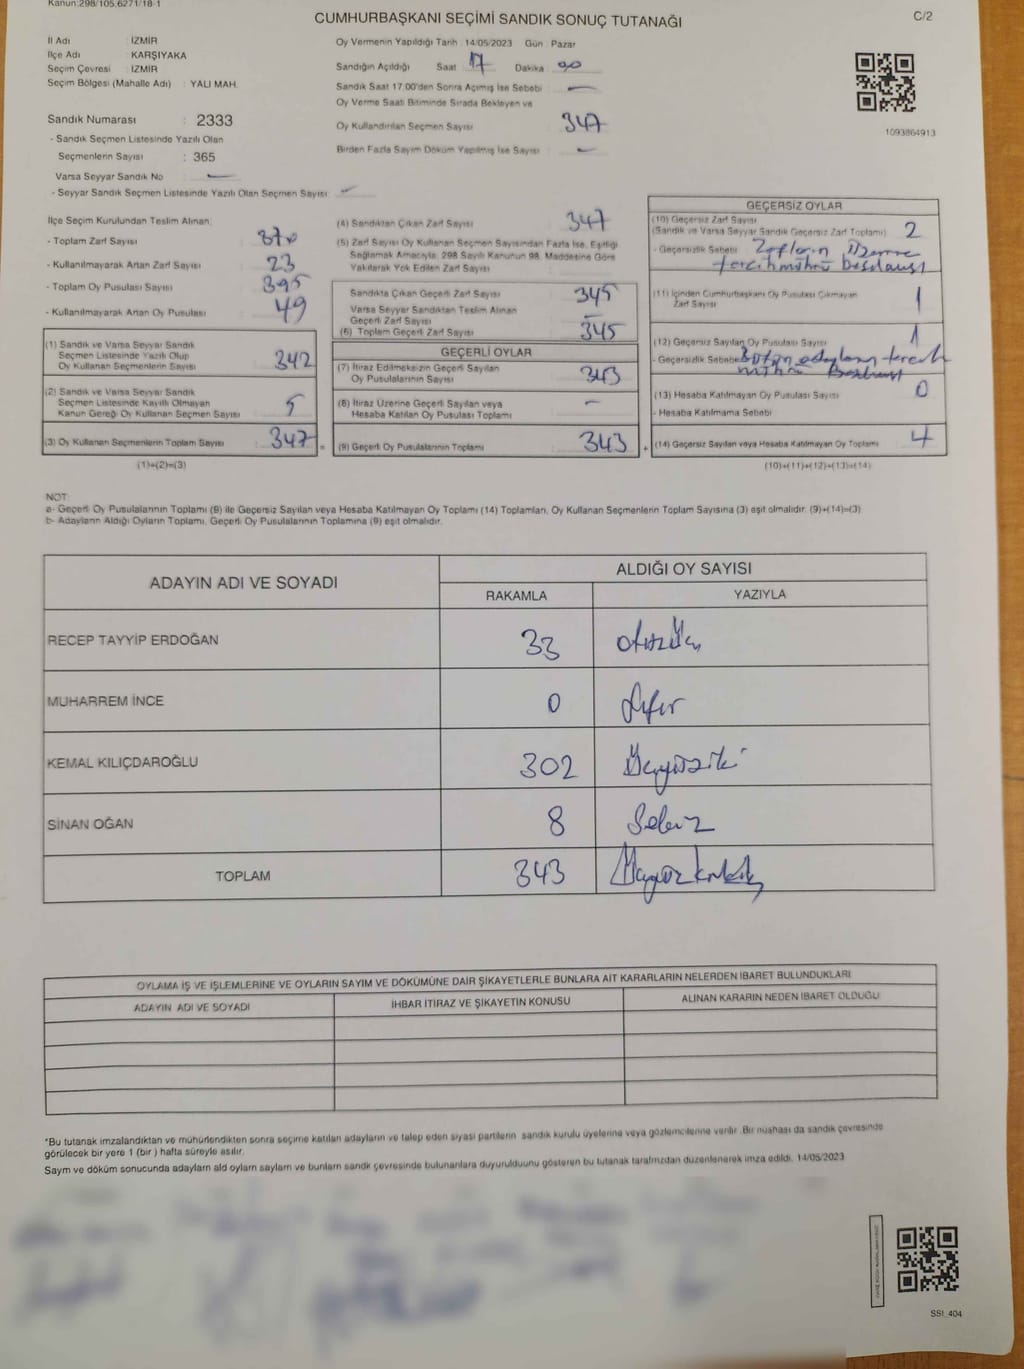 Kanun:298/105,6271/18-1
CUMHURBAŞKANI SEÇİMİ SANDIK SONUÇ TUTANAĞI
C/2
İl Adı : İZMİR
İlçe Adı : KARŞIYAKA
Seçim Çevresi : İZMİR
Seçim Bölgesi (Mahalle Adı) : YALI MAH.
Sandık Numarası : 2333
- Sandık Seçmen Listesinde Yazılı Olan
Seçmenlerin Sayısı : 365
Varsa Seyyar Sandık No —
- Seyyar Sandık Seçmen Listesinde Yazılı Olan Seçmen Sayısı —
Oy Vermenin Yapıldığı Tarih 14/05/2023 Gün Pazar
Sandığın Açıldığı Saat 17 Dakika 00
Sandık Saat 17.00'den Sonra Açılmış İse Sebebi —
Oy Verme Saati Bitiminde Sırada Bekleyen ve
Oy Kullandırılan Seçmen Sayısı 347
Birden Fazla Sayım Döküm Yapılmış İse Sayısı —
1093864913
İlçe Seçim Kurulundan Teslim Alınan;
- Toplam Zarf Sayısı 370
- Kullanılmayarak Artan Zarf Sayısı 23
- Toplam Oy Pusulası Sayısı 395
- Kullanılmayarak Artan Oy Pusulası 49
(1) Sandık ve Varsa Seyyar Sandık
Seçmen Listesinde Yazılı Olup
Oy Kullanan Seçmenlerin Sayısı 342
(2) Sandık ve Varsa Seyyar Sandık
Seçmen Listesinde Kayıtlı Olmayan
Kanun Gereği Oy Kullanan Seçmen Sayısı 5
(3) Oy Kullanan Seçmenlerin Toplam Sayısı 347 =
(1)+(2)=(3)
(4) Sandıktan Çıkan Zarf Sayısı 347
(5) Zarf Sayısı Oy Kullanan Seçmen Sayısından Fazla İse, Eşitliği
Sağlamak Amacıyla, 298 Sayılı Kanunun 98. Maddesine Göre
Yakılarak Yok Edilen Zarf Sayısı :
Sandıkta Çıkan Geçerli Zarf Sayısı 345
Varsa Seyyar Sandıktan Teslim Alınan
Geçerli Zarf Sayısı —
(6) Toplam Geçerli Zarf Sayısı 345
GEÇERLİ OYLAR
(7) İtiraz Edilmeksizin Geçerli Sayılan
Oy Pusulasının Sayısı 343
(8) İtiraz Üzerine Geçerli Sayılan veya
Hesaba Katılan Oy Pusulası Toplamı —
(9) Geçerli Oy Pusulalarının Toplamı 343 +
GEÇERSİZ OYLAR
(10) Geçersiz Zarf Sayısı
(Sandık ve Varsa Seyyar Sandık Geçersiz Zarf Toplamı) 2
- Geçersizlik Sebebi Zarfların Üzerine
tercih mührü basılmış
(11) İçinden Cumhurbaşkanı Oy Pusulası Çıkmayan
Zarf Sayısı 1
(12) Geçersiz Sayılan Oy Pusulası Sayısı 1
- Geçersizlik Sebebi Bütün adayların tercih
mührü Basılmış
(13) Hesaba Katılmayan Oy Pusulası Sayısı 0
- Hesaba Katılmama Sebebi
(14) Geçersiz Sayılan veya Hesaba Katılmayan Oy Toplamı 4
(10)+(11)+(12)+(13)=(14)
NOT:
a- Geçerli Oy Pusulalarının Toplamı (9) ile Geçersiz Sayılan veya Hesaba Katılmayan Oy Toplamı (14) Toplamları, Oy Kullanan Seçmenlerin Toplam Sayısına (3) eşit olmalıdır. (9)+(14)=(3)
b- Adayların Aldığı Oyların Toplamı, Geçerli Oy Pusulalarının Toplamına (9) eşit olmalıdır.
ADAYIN ADI VE SOYADI
ALDIĞI OY SAYISI
RAKAMLA YAZIYLA
RECEP TAYYİP ERDOĞAN 33 otuzüç
MUHARREM İNCE 0 Sıfır
KEMAL KILIÇDAROĞLU 302 Üçyüziki
SİNAN OĞAN 8 Sekiz
TOPLAM 343 Üçyüzkırküç
OYLAMA İŞ VE İŞLEMLERİNE VE OYLARIN SAYIM VE DÖKÜMÜNE DAİR ŞİKAYETLERLE BUNLARA AİT KARARLARIN NELERDEN İBARET BULUNDUKLARI
ADAYIN ADI VE SOYADI İHBAR İTİRAZ VE ŞİKAYETİN KONUSU ALINAN KARARIN NEDEN İBARET OLDUĞU
*Bu tutanak imzalandıktan ve mühürlendikten sonra seçime katılan adayların ve talep eden siyasi partilerin sandık kurulu üyelerine veya gözlemcilerine verilir .Bir nüshası da sandık çevresinde
görülecek bir yere 1 (bir ) hafta süreyle asılır.
Sayım ve döküm sonucunda adayların ald oyların sayların ve bunların sandk çevresinde bulunanlara duyurulduunu gösteren bu tutanak tarafmzdan düzenlenerek imza edildi. 14/05/2023
SSI_404